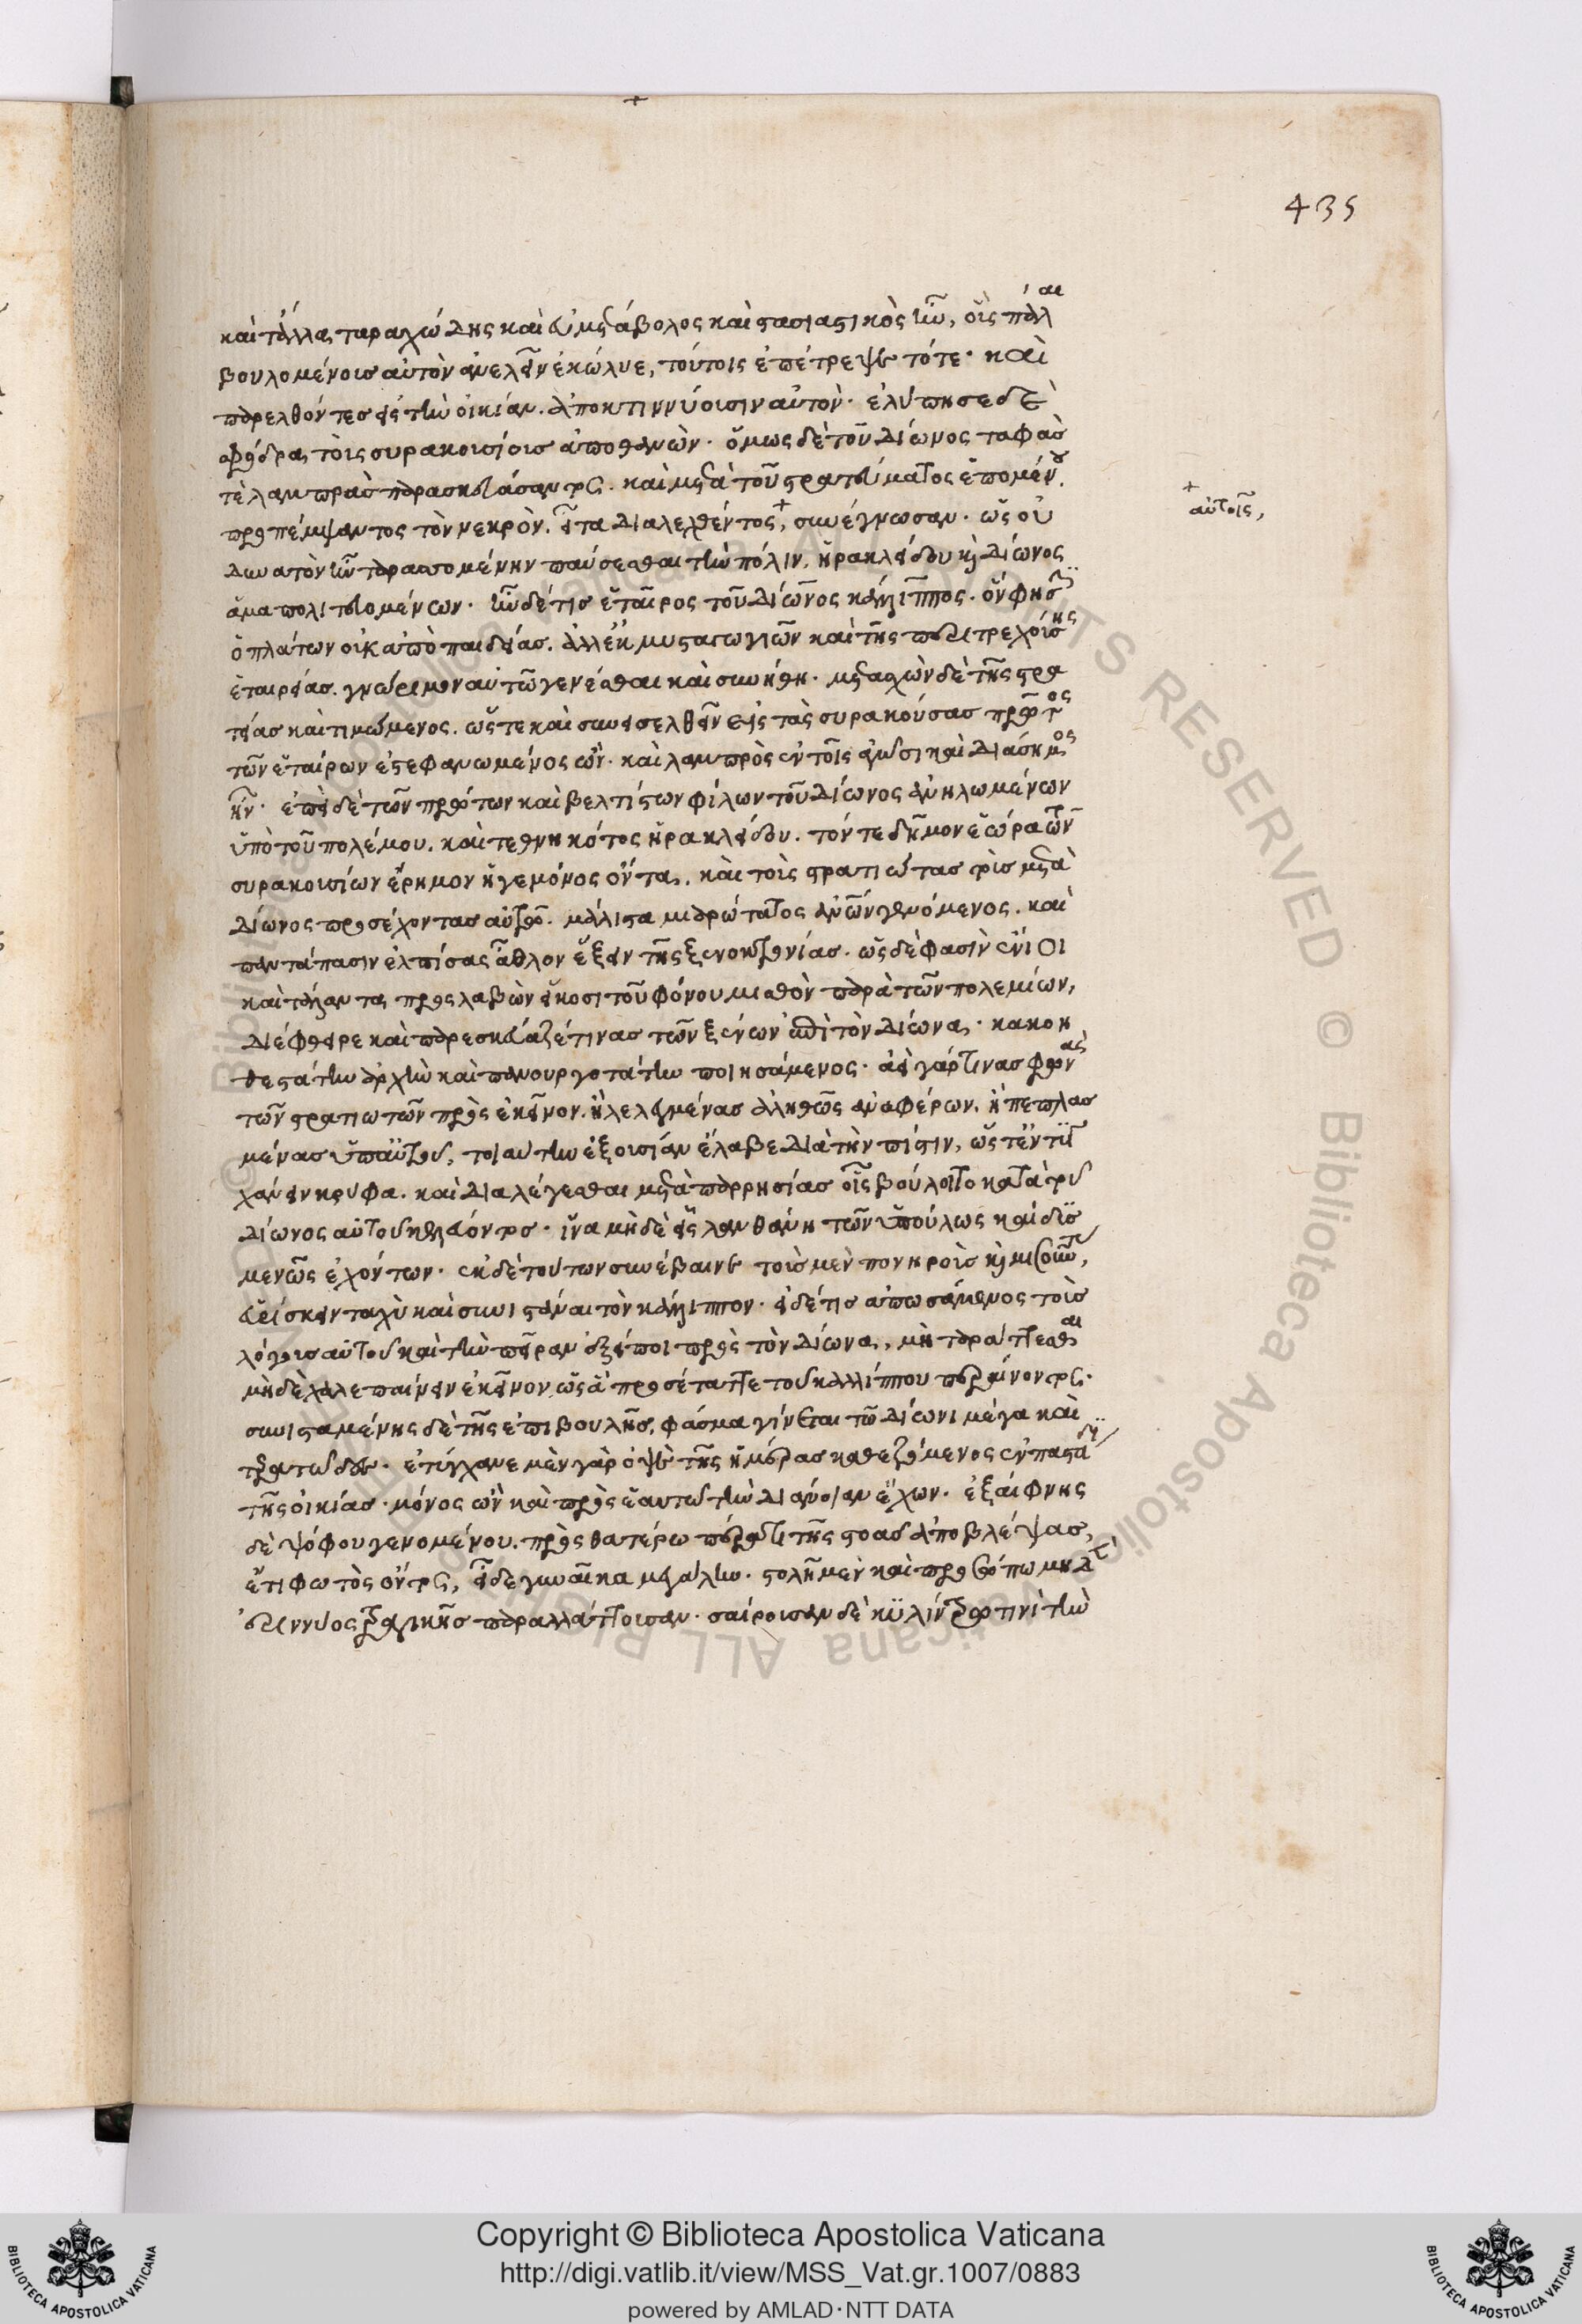 435
καὶ τἄλλα ταραχώδης καὶ εὐμετάβολος καὶ στασιαστικὸς ἦν, οἷς πάλαι
βουλομένοις αὐτὸν ἀνελεῖν ἐκώλυε, τούτοις ἐπέτρεψε τότε· καὶ
παρελθόντες εἰς τὴν οἰκίαν. ἀποκτιννύουσιν αὐτόν· ἐλύπησε δὲ
σφόδρα τοῖς συρακουσίοις ἀποθανών· ὅμως δὲ τοῦ Δίωνος ταφάς
τε λαμπρὰς παρασκευάσαντος. καὶ μετὰ τοῦ στρατεύματος ἑπομένου
προπέμψαντος τὸν νεκρόν. εἶτα διαλεχθέντος+, συνέγνωσαν· ὡς οὐ
δυνατὸν ἦν ταραττομένην παύσεσθαι τὴν πόλιν. ἡρακλείδου καὶ Δίωνος
ἅμα πολιτευομένων· ἦν δέ τις ἑταῖρος τοῦ Δίωνος κάλλιππος. ὅν φησιν
ὁ πλάτων οὐκ ἀπὸ παιδείας. ἀλλ' ἐκ μυσταγωγιῶν καὶ τῆς περιτρεχούσης
ἑταιρείας. γνώριμον αὐτῶ γενέσθαι καὶ συνήθη· μετασχὼν δὲ τῆς στρα
τείας καὶ τιμώμενος. ὥστε καὶ συνεισελθεῖν εἰς τὰς συρακούσας πρῶτος
τῶν ἑταίρων ἐστεφανωμένος ὤν· καὶ λαμπρὸς ἐν τοῖς ἀγῶσι καὶ διάσημος
ἦν· ἐπεὶ δὲ τῶν πρώτων καὶ βελτίστων φίλων τοῦ Δίωνος ἀνηλωμένων
ὑπὸ τοῦ πολέμου. καὶ τεθνηκότος ἡρακλείδου. τόν τε δῆμον ἑώρα τῶν
συρακουσίων ἔρημον ἡγεμόνος ὄντα, καὶ τοὺς στρατιώτας τοὺς μετὰ
Δίωνος προσέχοντας αὐτῶ· μάλιστα μιαρώτατος ἀνθρώπων γενόμενος. καὶ
παντάπασιν ἐλπίσας ἆθλον ἕξειν τῆς ξενοκτονίας. ὡς δέ φασιν ἔνιοι
καὶ τάλαντα προσλαβὼν εἴκοσι τοῦ φόνου μισθὸν παρὰ τῶν πολεμίων,
διέφθειρε καὶ παρεσκεύαζέ τινας τῶν ξένων ἐπὶ τὸν Δίωνα· κακοη
θεστάτην ἀρχὴν καὶ πανουργοτάτην ποιησάμενος· ἀεὶ γάρ τινας φωνὰς
τῶν στρατιωτῶν πρὸς ἐκεῖνον. ἢ λελεγμένας ἀληθῶς ἀναφέρων. ἢ πεπλασ
μένας ὑπ' αὐτοῦ, τοιαύτην ἐξουσίαν ἔλαβε διὰ τὴν πίστιν, ὥστ' ἐντυγ
χάνειν κρύφα. καὶ διαλέγεσθαι μετὰ παρρησίας οἷς βούλοιτο κατὰ τοῦ
Δίωνος αὐτοῦ κελεύοντος· ἵνα μηδὲ εἷς λανθάνη τῶν ὑπούλως καὶ δυσ
μενῶς ἐχόντων· ἐκ δὲ τούτων συνέβαινε τοὺς μὲν πονηροὺς καὶ νοσοῦντας,
εὑρίσκειν ταχὺ καὶ συνιστάναι τὸν κάλλιππον· εἰ δέ τις ἀπωσάμενος τοὺς
λόγους αὐτοῦ καὶ τὴν πεῖραν ἐξείποι πρὸς τὸν Δίωνα, μὴ ταράττεσθαι
μηδὲ χαλεπαίνειν ἐκεῖνον ὡς ἃ προσέταττε τοῦ καλλίππου περαίνοντος·
συνισταμένης δὲ τῆς ἐπιβουλῆς, φάσμα γίνεται τῶ Δίωνι μέγα καὶ
τερατῶδες· ἐτύγχανε μὲν γὰρ ὀψὲ τῆς ἡμέρας καθεζόμενος ἐν παστάδι
τῆς οἰκίας· μόνος ὢν καὶ πρὸς ἑαυτῶ τὴν διάνοιαν ἔχων· ἐξαίφνης
δὲ ψόφου γενομένου. πρὸς θατέρω πέρατι τῆς στοᾶς ἀποβλέψας,
ἔτι φωτὸς ὄντος, εἶδε γυναῖκα μεγάλην· στολῆ μὲν καὶ προσώπω μηδὲν
ἐριννύος τραγικῆς παραλλάττουσαν· σαίρουσαν δὲ καλλύντρω τινὶ τὴν
+ αὐτοῖς,